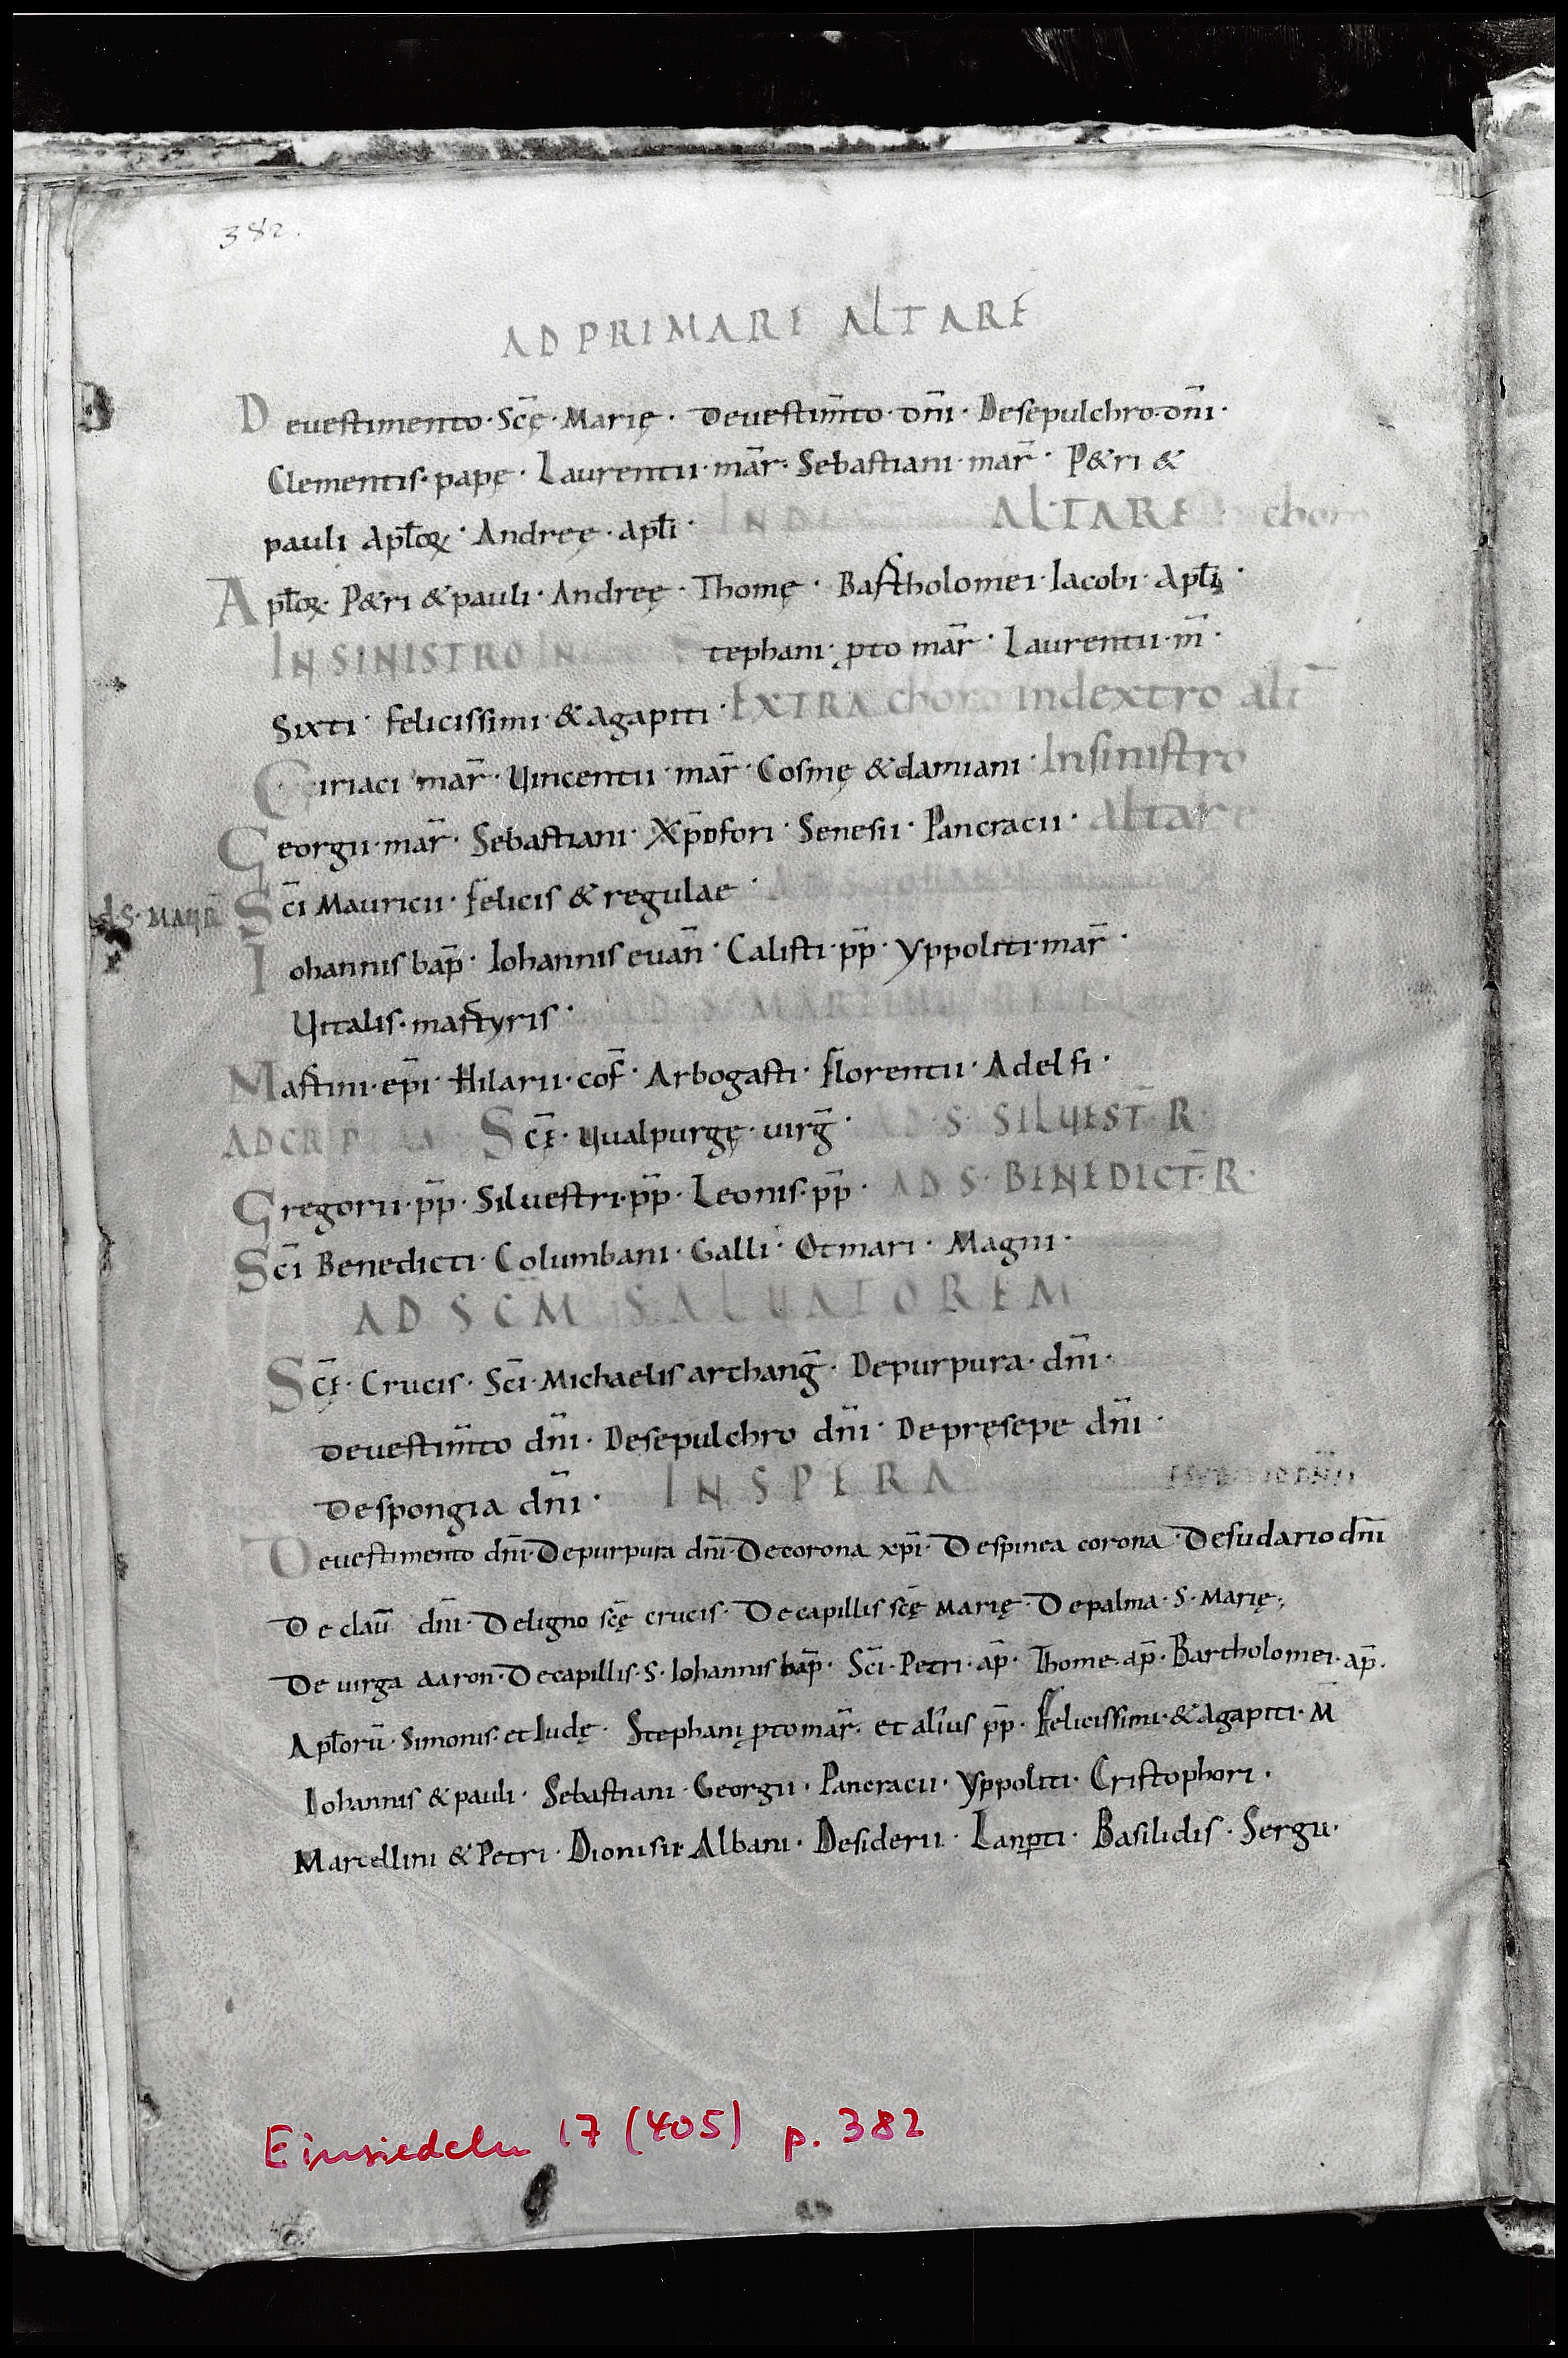 382.
AD PRIMARE ALTARE
Deuestimento· Scę̄· Marię· Deuestim̄to· dn̄i· Desepulchro· dn̄i·
Clementis· papę· Laurentii· mar̄· Sebastiani· mar̄· P&ri &
pauli Apl̄oꝝ· Andreę· apl̄i· ALTARE
Apl̄oꝝ· P&ri & pauli· Andreę· Thomę· Bartholomei· Iacobi· apl̄i·
IN SINISTRO Stephani· ꝓto mar̄· Laurentii· m̄·
Sixti· felicissimi· & agapiti· EXTRA choro indextro alt̄
Ciriaci mar̄· Uincentii· mar̄· Cosmę & damiani· Insinistro
Georgii· mar̄· Sebastiani· Xp̄ofori· Senesii· Pancracii· altare
Sc̄i Mauricii· felicis & regulae·
Iohannis bap̄· Iohannis euan̄· Calisti· pp̄· yppoliti· mar̄·
Uitalis· martyris· AD S MARTINU
Martini· ep̄i· Hilarii· cof̄· Arbogasti· florentii· Adelfi·
Sc̄ę· Uualpurgę· uirḡ· AD· S· SILUEST̄· R·
Gregorii· pp̄· Siluestri· pp̄· Leonis· pp̄· AD S· BENEDICT̄· R·
Sc̄i Benedicti· Columbani· Galli· Otmari· Magni·
AD SC̄M SALUATOREM
Sc̄ę· Crucis· Sc̄i· Michaelis archanḡ· Depurpura· dn̄i·
Deuestim̄to dn̄i· Desepulchro dn̄i· Depręsepe dn̄i·
Despongia dn̄i· IN SPERA
Deuestimento dn̄i· Depurpura dn̄i· Decorona xp̄i· Despinea corona· Desudario dn̄i
De clau̅ dn̄i· Deligno sc̄ę crucis· Decapillis sc̄ę Marię· Depalma· S· Marię·
De uirga aaron· Decapillis· S· Iohannis bap̄· Sc̄i· Petri· ap̄· Thome· ap̄· Bartholomei· ap̄·
Apl̄orū· Simonis· et Iudę· Stephani ꝓtomar̄· et alius pp̄· Felicissimi· & Agapiti· M̄
Iohannis & pauli· Sebastiani· Georgii· Pancracii· yppoliti· Cristophori·
Marcellini & Petri· Dionisii· Albani· Desiderii· Lanꝑti· Basilidis· Sergii·
Einsiedeln 17 (405) p. 382